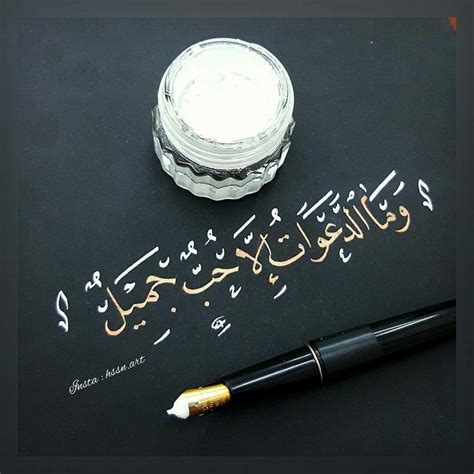 وَمَا الدَّعَوَاتُ إِلَّا حُبٌّ جَمِيلٌ
Insta : hssn.art